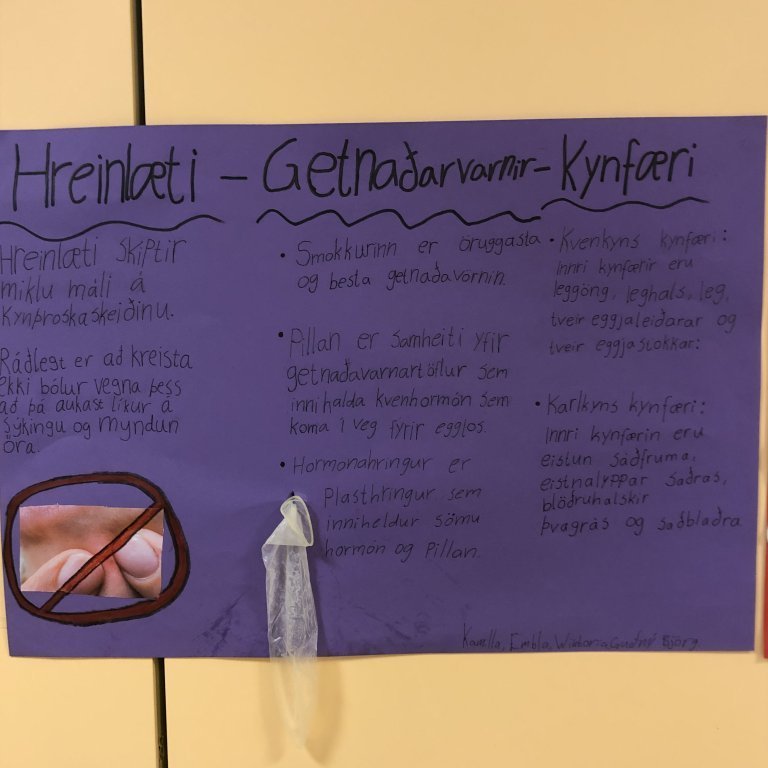 Hreinlæti - Getnaðarvarnir - Kynfæri
Hreinlæti skiptir
miklu máli á
kynþroskaskeiðinu.
Ráðlegt er að kreista
ekki bólur vegna þess
að þá aukast líkur á
sýkingu og myndun
öra.
• Smokkurinn er öruggasta
og besta getnaðavörnin.
• Pillan er samheiti yfir
getnaðavarnartöflur sem
innihalda kvenhormón sem
koma í veg fyrir egglos.
• Hormónahringur er
Plasthringur sem
inniheldur sömu
hormón og Pillan.
• Kvenkyns kynfæri:
innri kynfærir eru
leggöng, leghals, leg,
tveir eggjaleiðarar og
tveir eggjastokkar:
• Karlkyns kynfæri:
Innri kynfærin eru
eistun sáðfruma,
eistnalyppar sáðrás,
blöðruhalskir
þvagrás og saðblaðra
Embla, Guðný Björg